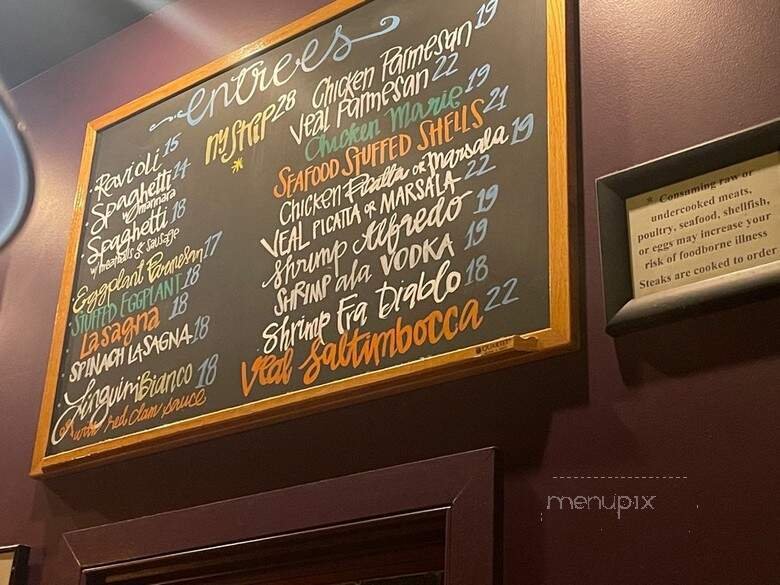 entrees
Ravioli 15
Spaghetti 14
w/marinara
Spaghetti 18
w/meatballs & sausage
Eggplant Parmesan 17
STUFFED EGGPLANT 18
Lasagna 18
SPINACH LASAGNA 18
Linguini Bianco 18
or with red clam sauce
NY Strip 28
*
Chicken Parmesan 19
Veal Parmesan 22
Chicken Marie 19
SEAFOOD STUFFED SHELLS 21
CHICKEN Picatta or Marsala 19
VEAL PICATTA or MARSALA 22
Shrimp Alfredo 19
SHRIMP ala VODKA 19
Shrimp Fra Diablo 18
Veal Saltimbocca 22
* Consuming raw or
undercooked meats,
poultry, seafood, shellfish,
or eggs may increase your
risk of foodborne illness
Steaks are cooked to order
menupix